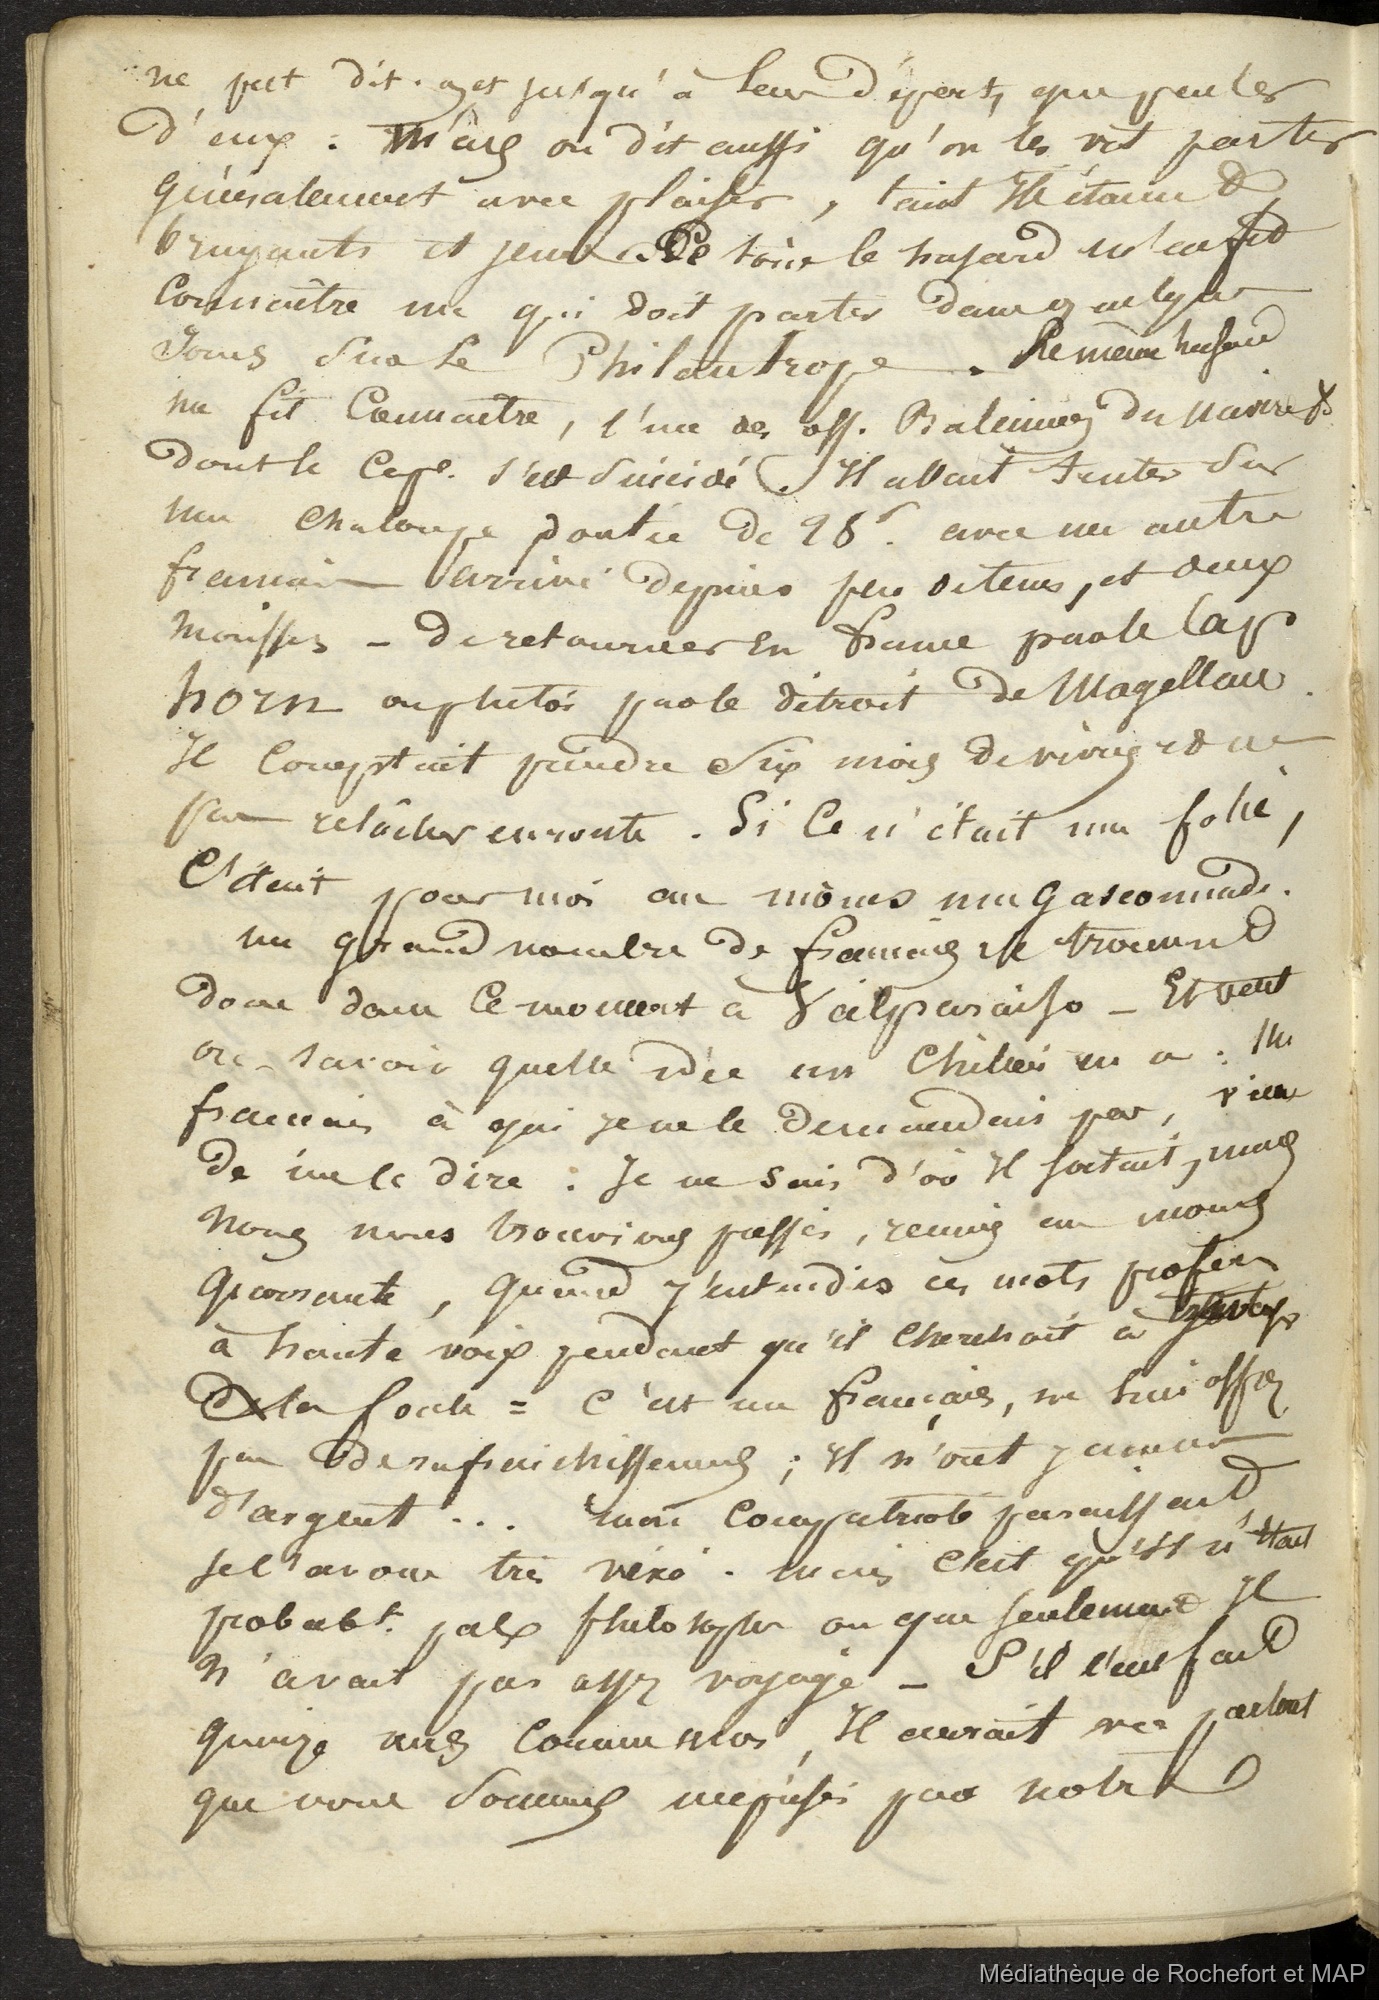 ne fut dit-on et jusqu'à leur départ, que parler
d'eux : Mais on dit aussi qu'on les vit partir
généralement avec plaisir, tant Ils étaient
bruyants et jeux. Ce soir le hasard m'en fit
Connaître un qui doit partir dans quelques
Jours sur le Philantrope. Le même hasard
me fit Connaître, l'un des off. Baleiniers du navire
dont le Cape. s'est suicidé. Il allait tenter sur
une chaloupe pontée de 28 avec un autre
français arrivé depuis peu de tems, et deux
mousses - de retourner en france par le Cap
horn ou plutôt par le détroit de Magellan.
Il Comptait prendre six mois de vivres et ne
pas relâcher en route. Si Ce n'était une folie,
C'était pour moi au moins une gasconnade.
un grand nombre de français se trouvent
donc dans Ce moment à Valparaiso - Et veut
on savoir quelle idée un Chilien en a : Un
français à qui je ne le demandais pas, vient
de me le dire : Je ne sais d'où Il sortait, mais
nous nous trouvions passés, réunis au moins
quarante, quand j'entendis ces mots proférés
à haute voix pendant qu'il cherchait à
la foule = C'est un français, ne lui offrez
pas de rafraichissemens ; Il n'ont jamais
d'argent ... mon Compatriote paraissait,
je l'avoue très véxé. mais C'est qu'Il n'était
probabt. pas philosophe ou que seulement Il
n'avait pas assez voyagé - S'il l'eut fait
quinze ans Comme moi, Il aurait vu partout
que nous sommes méprisés par notre
Médiathèque de Rochefort et MAP